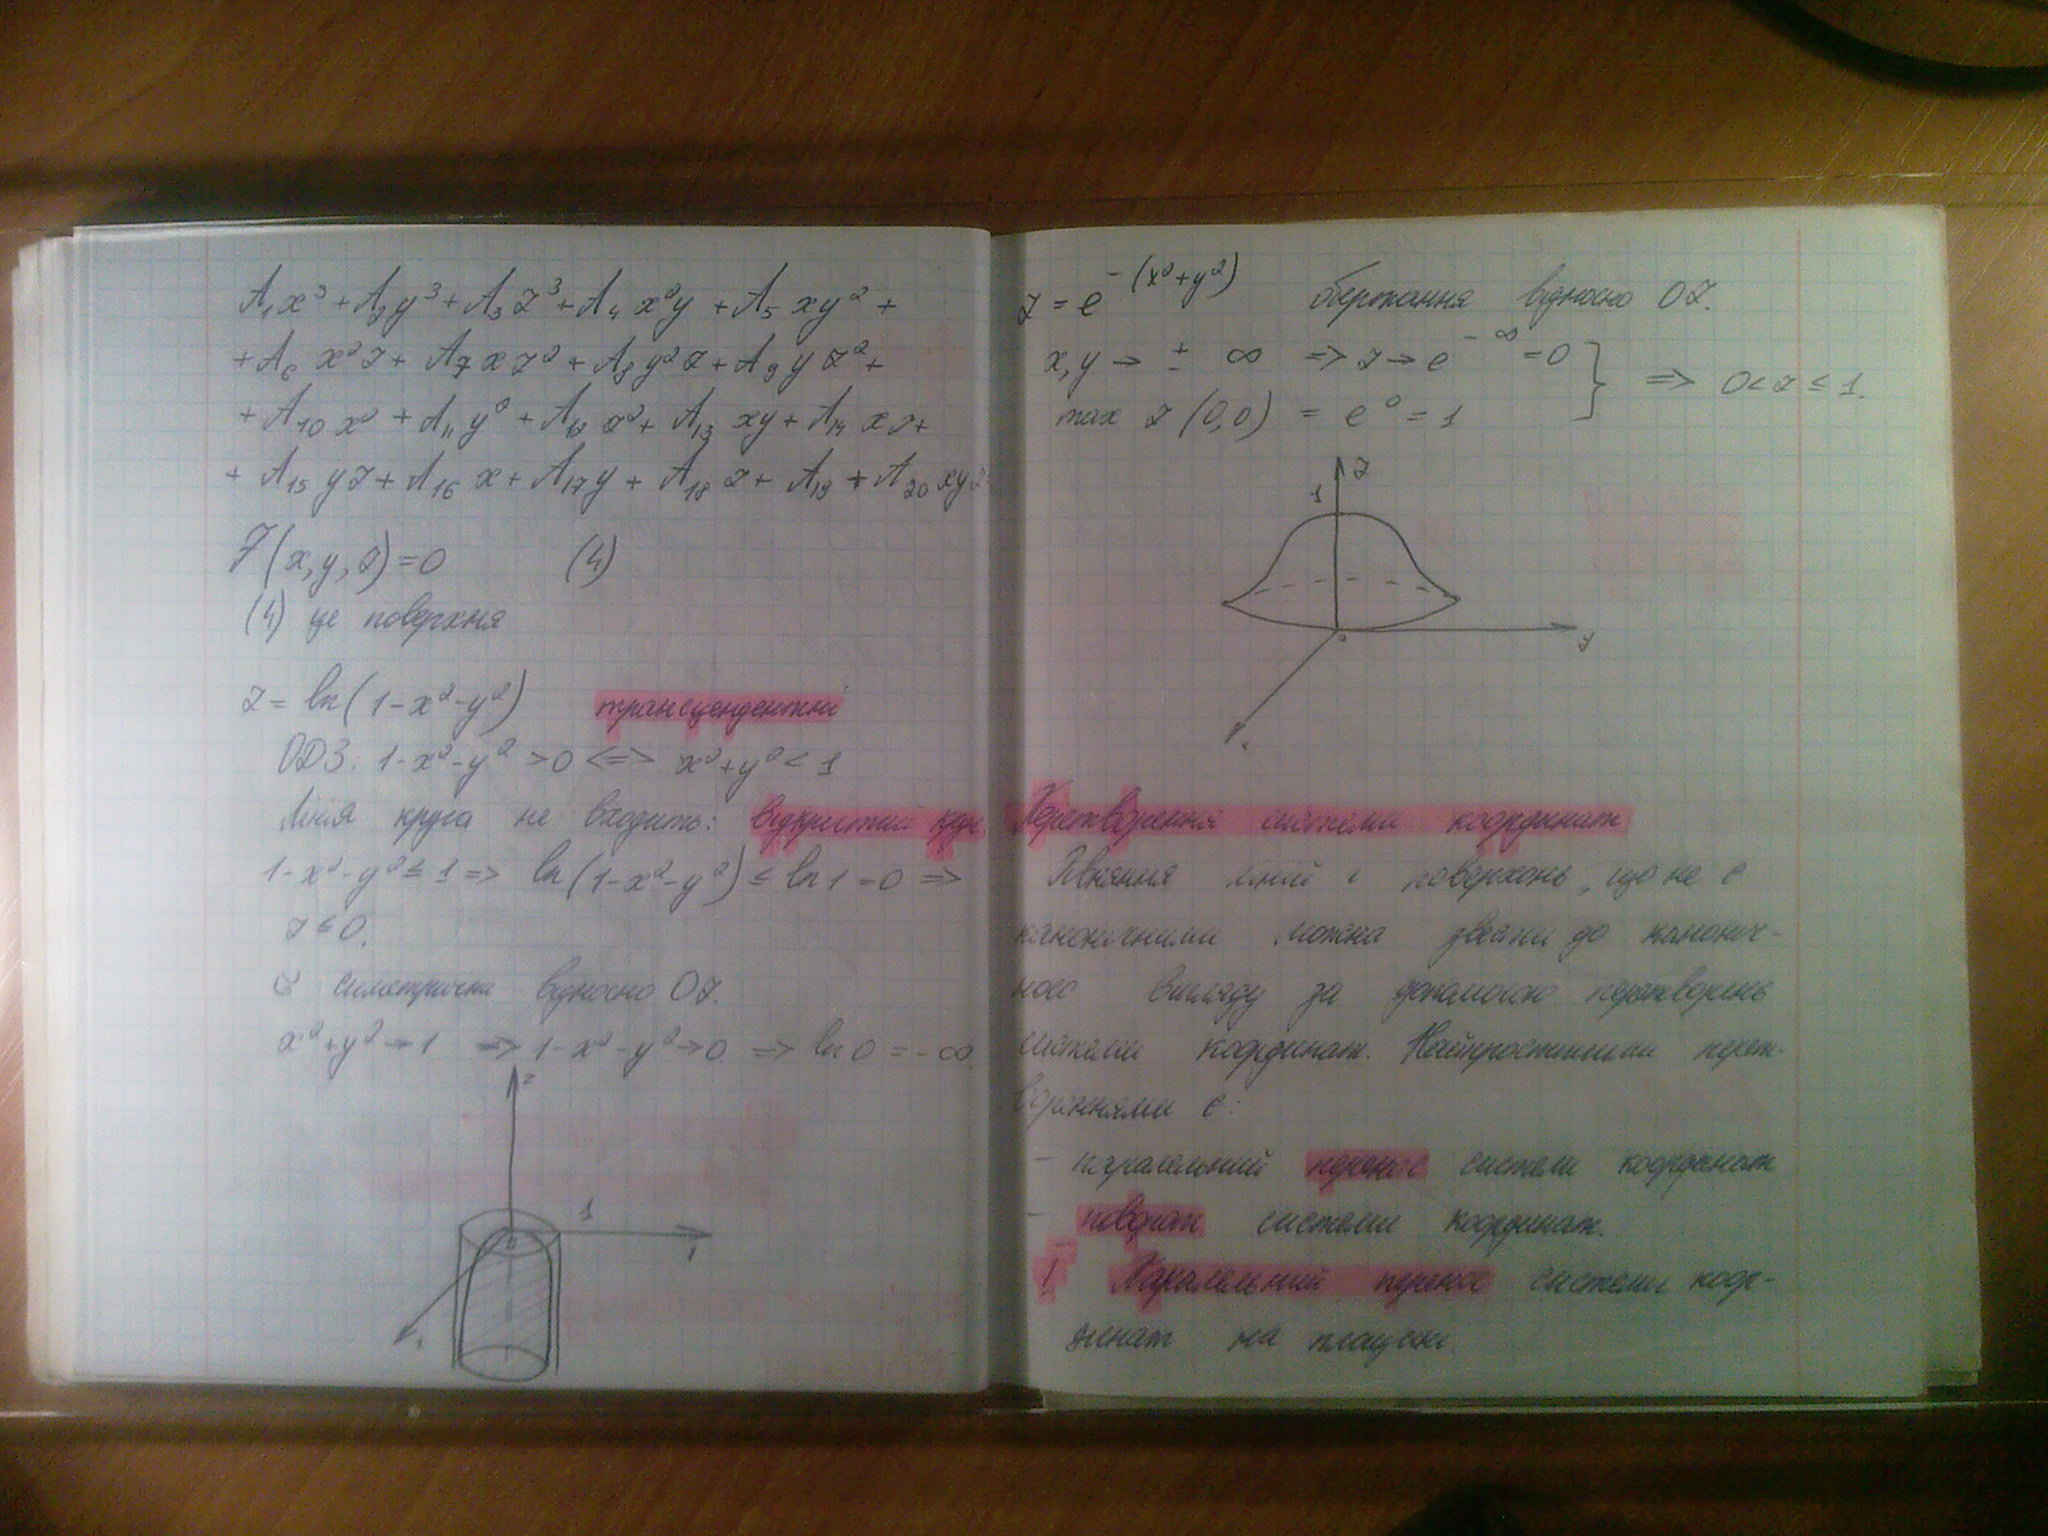 A₁x³ + A₂y³ + A₃z³ + A₄x²y + A₅xy² +
+ A₆x²z + A₇xz² + A₈y²z + A₉yz² +
+ A₁₀x² + A₁₁y² + A₁₂z² + A₁₃xy + A₁₄xz +
+ A₁₅yz + A₁₆x + A₁₇y + A₁₈z + A₁₉ + A₂₀xyz
F(x,y,z)=0 (4)
(4) це поверхня
z = ln(1-x²-y²) трансцендентний
ОДЗ: 1-x²-y² > 0 <=> x²+y² < 1
Лінія круга не входить: відкритий круг.
1-x²-y² ≤ 1 => ln(1-x²-y²) ≤ ln1 = 0 =>
z ≤ 0.
симетрична відносно OZ.
x²+y² → 1 => 1-x²-y² → 0 => ln0 = -∞
z
1
0
y
x
z = e^-(x²+y²) обертання відносно OZ.
x,y → ± ∞ => z → e^-∞ = 0
max z(0,0) = e⁰ = 1 } => 0 < z ≤ 1.
z
1
0
y
x
Перетворення системи координат
Рівняння ліній і поверхонь, що не є
канонічними можна звести до каноніч-
ного вигляду за допомогою перетворень
системи координат. Найпростішими перет-
вореннями є:
- паралельний перенос системи координат
- поворот системи координат.
I Паралельний перенос системи коор-
динат на площині.